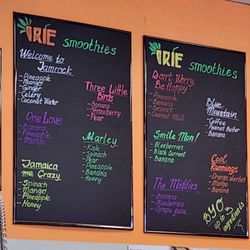 IRIE smoothies
Welcome to
Jamrock
Pineapple
Mango
Ginger
Celery
Coconut Water
One Love
Banana
Pineapple
Mango
Jamaica
me Crazy
Spinach
Mango
Pineapple
Honey
Three Little
Birds
Banana
Strawberry
Pear
Marley
Kale
Spinach
Pear
Pineapple
Banana
Honey
IRIE smoothies
Don't Worry,
Be Happy
Pineapple
Banana
Coconut
Smile Mon!
Blueberries
Black Currant
Banana
The Maddies
Banana
Blueberries
Grape Juice
Blue
Mountain
Coffee
Peanut
Banana
Cool
Runnings
Orange sherbet
Mango
Banana
BYO
up to 3
ingredients